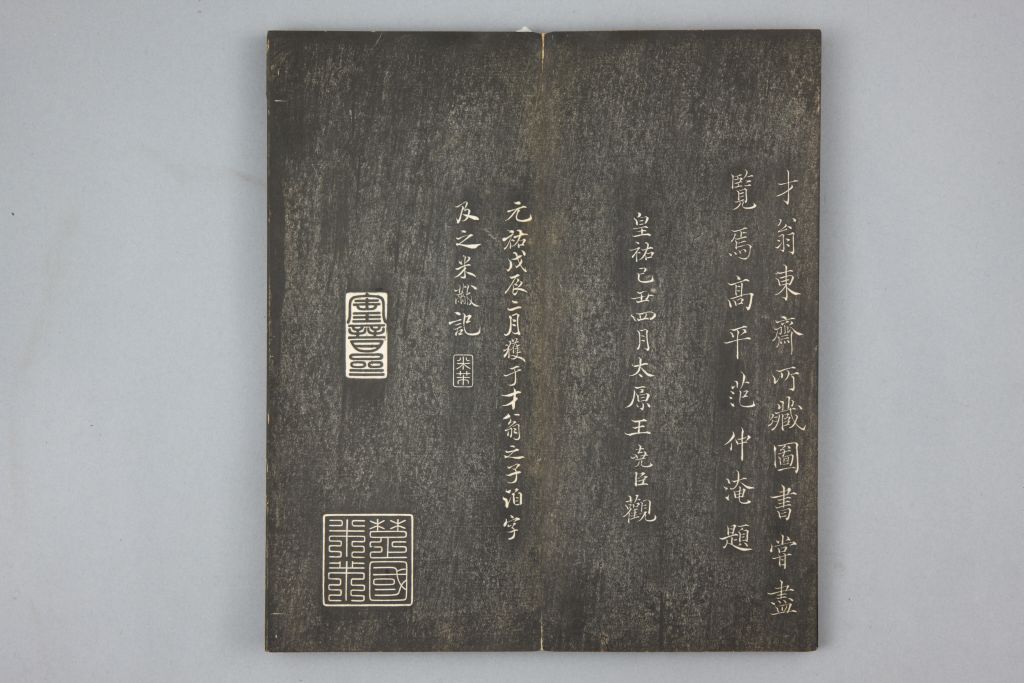 才翁東齋所藏圖書嘗盡
覽焉高平范仲淹題
皇祐己丑四月太原王堯臣觀
元祐戊辰二月獲于才翁之子洎字
及之米黻記
米芾
寶晉齋
楚國米芾